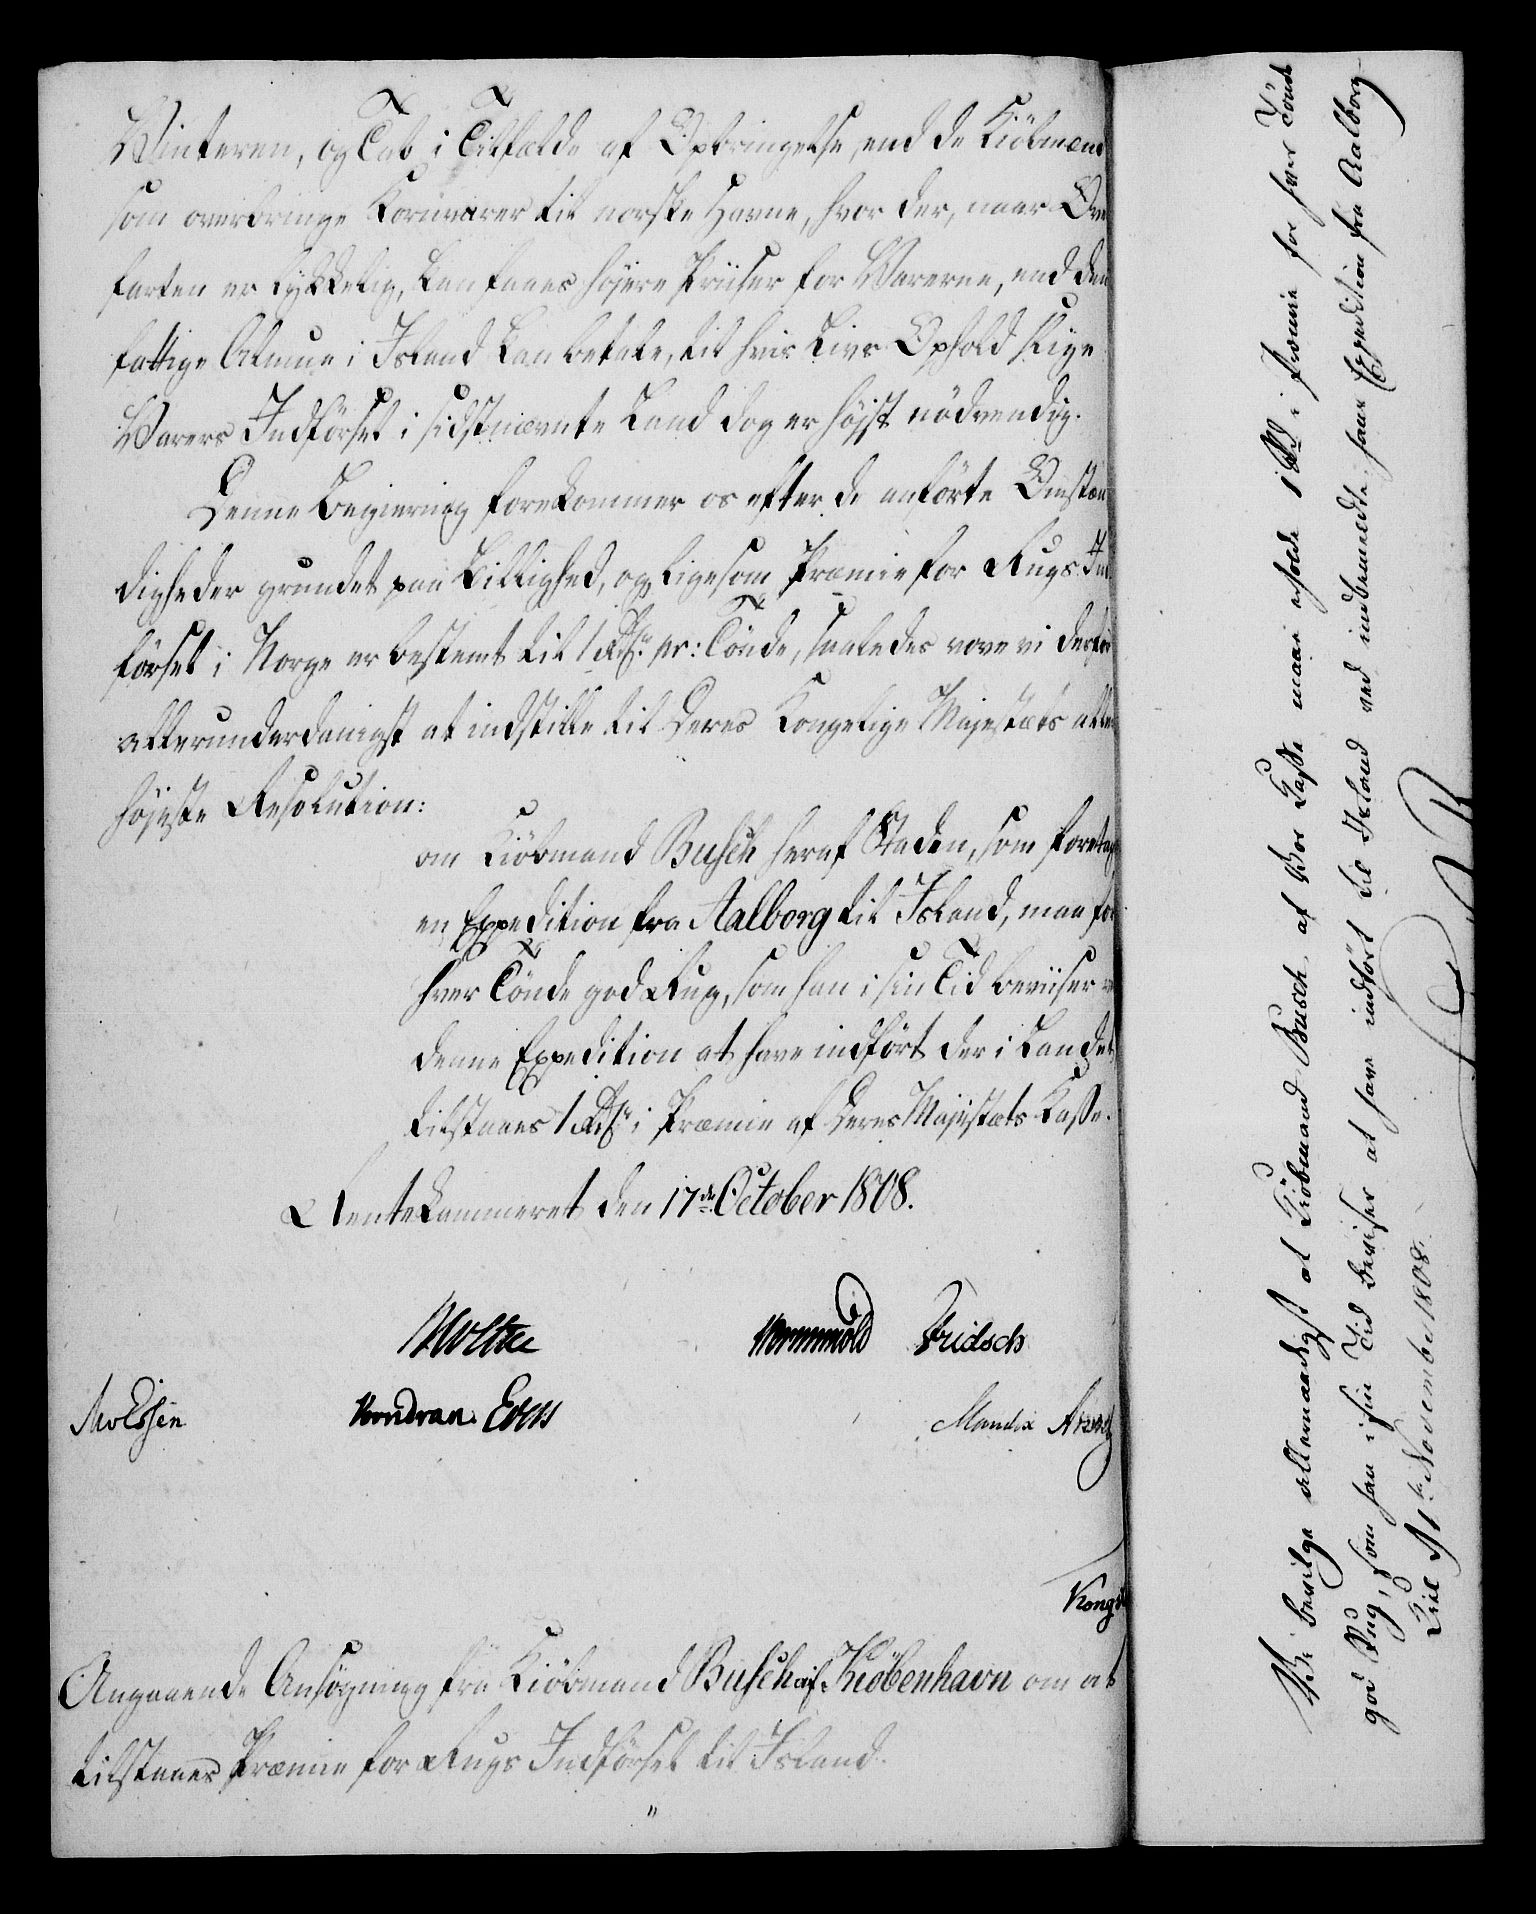 Winteren, og Tab i Tilfælde af Opbringelse, end de Kiöbmænd
som overbringe Kornvarer til norske Havne, hvor der, naar Over
farten er lykkelig, kan faaes höjere Priiser for Varerne, end den
fattige Almue i Island kan betale, til hvis Livs Ophold slige
Varers Indförsel i sidstnævnte Land dog er höjst nödvendig.
Denne Begiering forekommer os efter de anförte Omstæn
digheder grundet paa Billighed, og ligesom Præmie for Rugs Ind
försel i Norge er bestemt til 1 Rdlr pr: Tönde, saaledes vove vi derfor
allerunderdanigst at indstille til Deres Kongelige Majestæts aller
höjeste Resolution:
om Kiöbmand Busch heraf Staden, som foretager
en Expedition fra Aalborg til Island, maa for
hver Tönde god Rug, som han i sin Tid beviiser ved
denne Expedition at have indfört der i Landet,
tilstaaes 1 Rdlr i Præmie af Deres Majestæts Kasse.
Rentekammeret den 17de October 1808.
Moltke Wormskiold Fridsch
Knudsen Wendran Evers Mandix
Kongel
Angaaende Ansögning fra Kiöbmand Busch af Kiöbenhavn om at
tilstaaes Præmie for Rugs Indförsel til Island.
Vi bevilge allernaadigst at Kiöbmand Busch, af Vor Kasse maae erholde 1 Rd i Præmie for hver Tönde
god Rug, som han i sin Tid beviser at have indfört til Island ved indbemeldte hans Expedition fra Aalborg
Kiel November 1808.